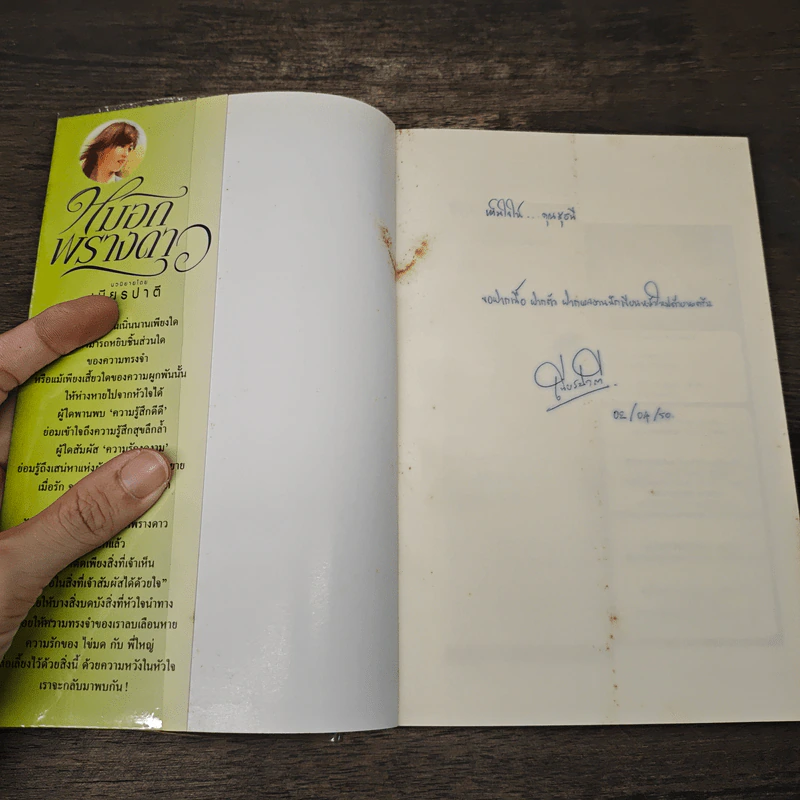 หมอก
พรางดาว
นวนิยายโดย
ียรปาตี
เนิ่นนานเพียงใด
มารถหยิบชิ้นส่วนใด
ของความทรงจำ
หรือแม้เพียงเสี้ยวใดของความผูกพันนั้น
ให้ห่างหายไปจากหัวใจได้
ผู้ใดพานพบ ‘ความรู้สึกดีดี’
ย่อมเข้าใจถึงความรู้สึกสุขลึกล้ำ
ผู้ใดสัมผัส
ย่อมรู้ถึงเสน่ห์แห่ง
เมื่อรัก
พรางดาว
แล้ว
เพียงสิ่งที่เจ้าเห็น
ในสิ่งที่เจ้าสัมผัสได้ด้วยใจ”
ให้บางสิ่งบดบังสิ่งที่หัวใจนำทาง
ให้ความทรงจำของเราลบเลือนหาย
ความรักของ ไข่มด กับ พี่ใหญ่
เลี้ยงไว้ด้วยสิ่งนี้ ด้วยความหวังในหัวใจ
เราจะกลับมาพบกัน !
ขอฝากเนื้อ ฝากตัว ฝากผลงานนักเขียนหน้าใหม่ด้วยนะครับ
02/04/50.